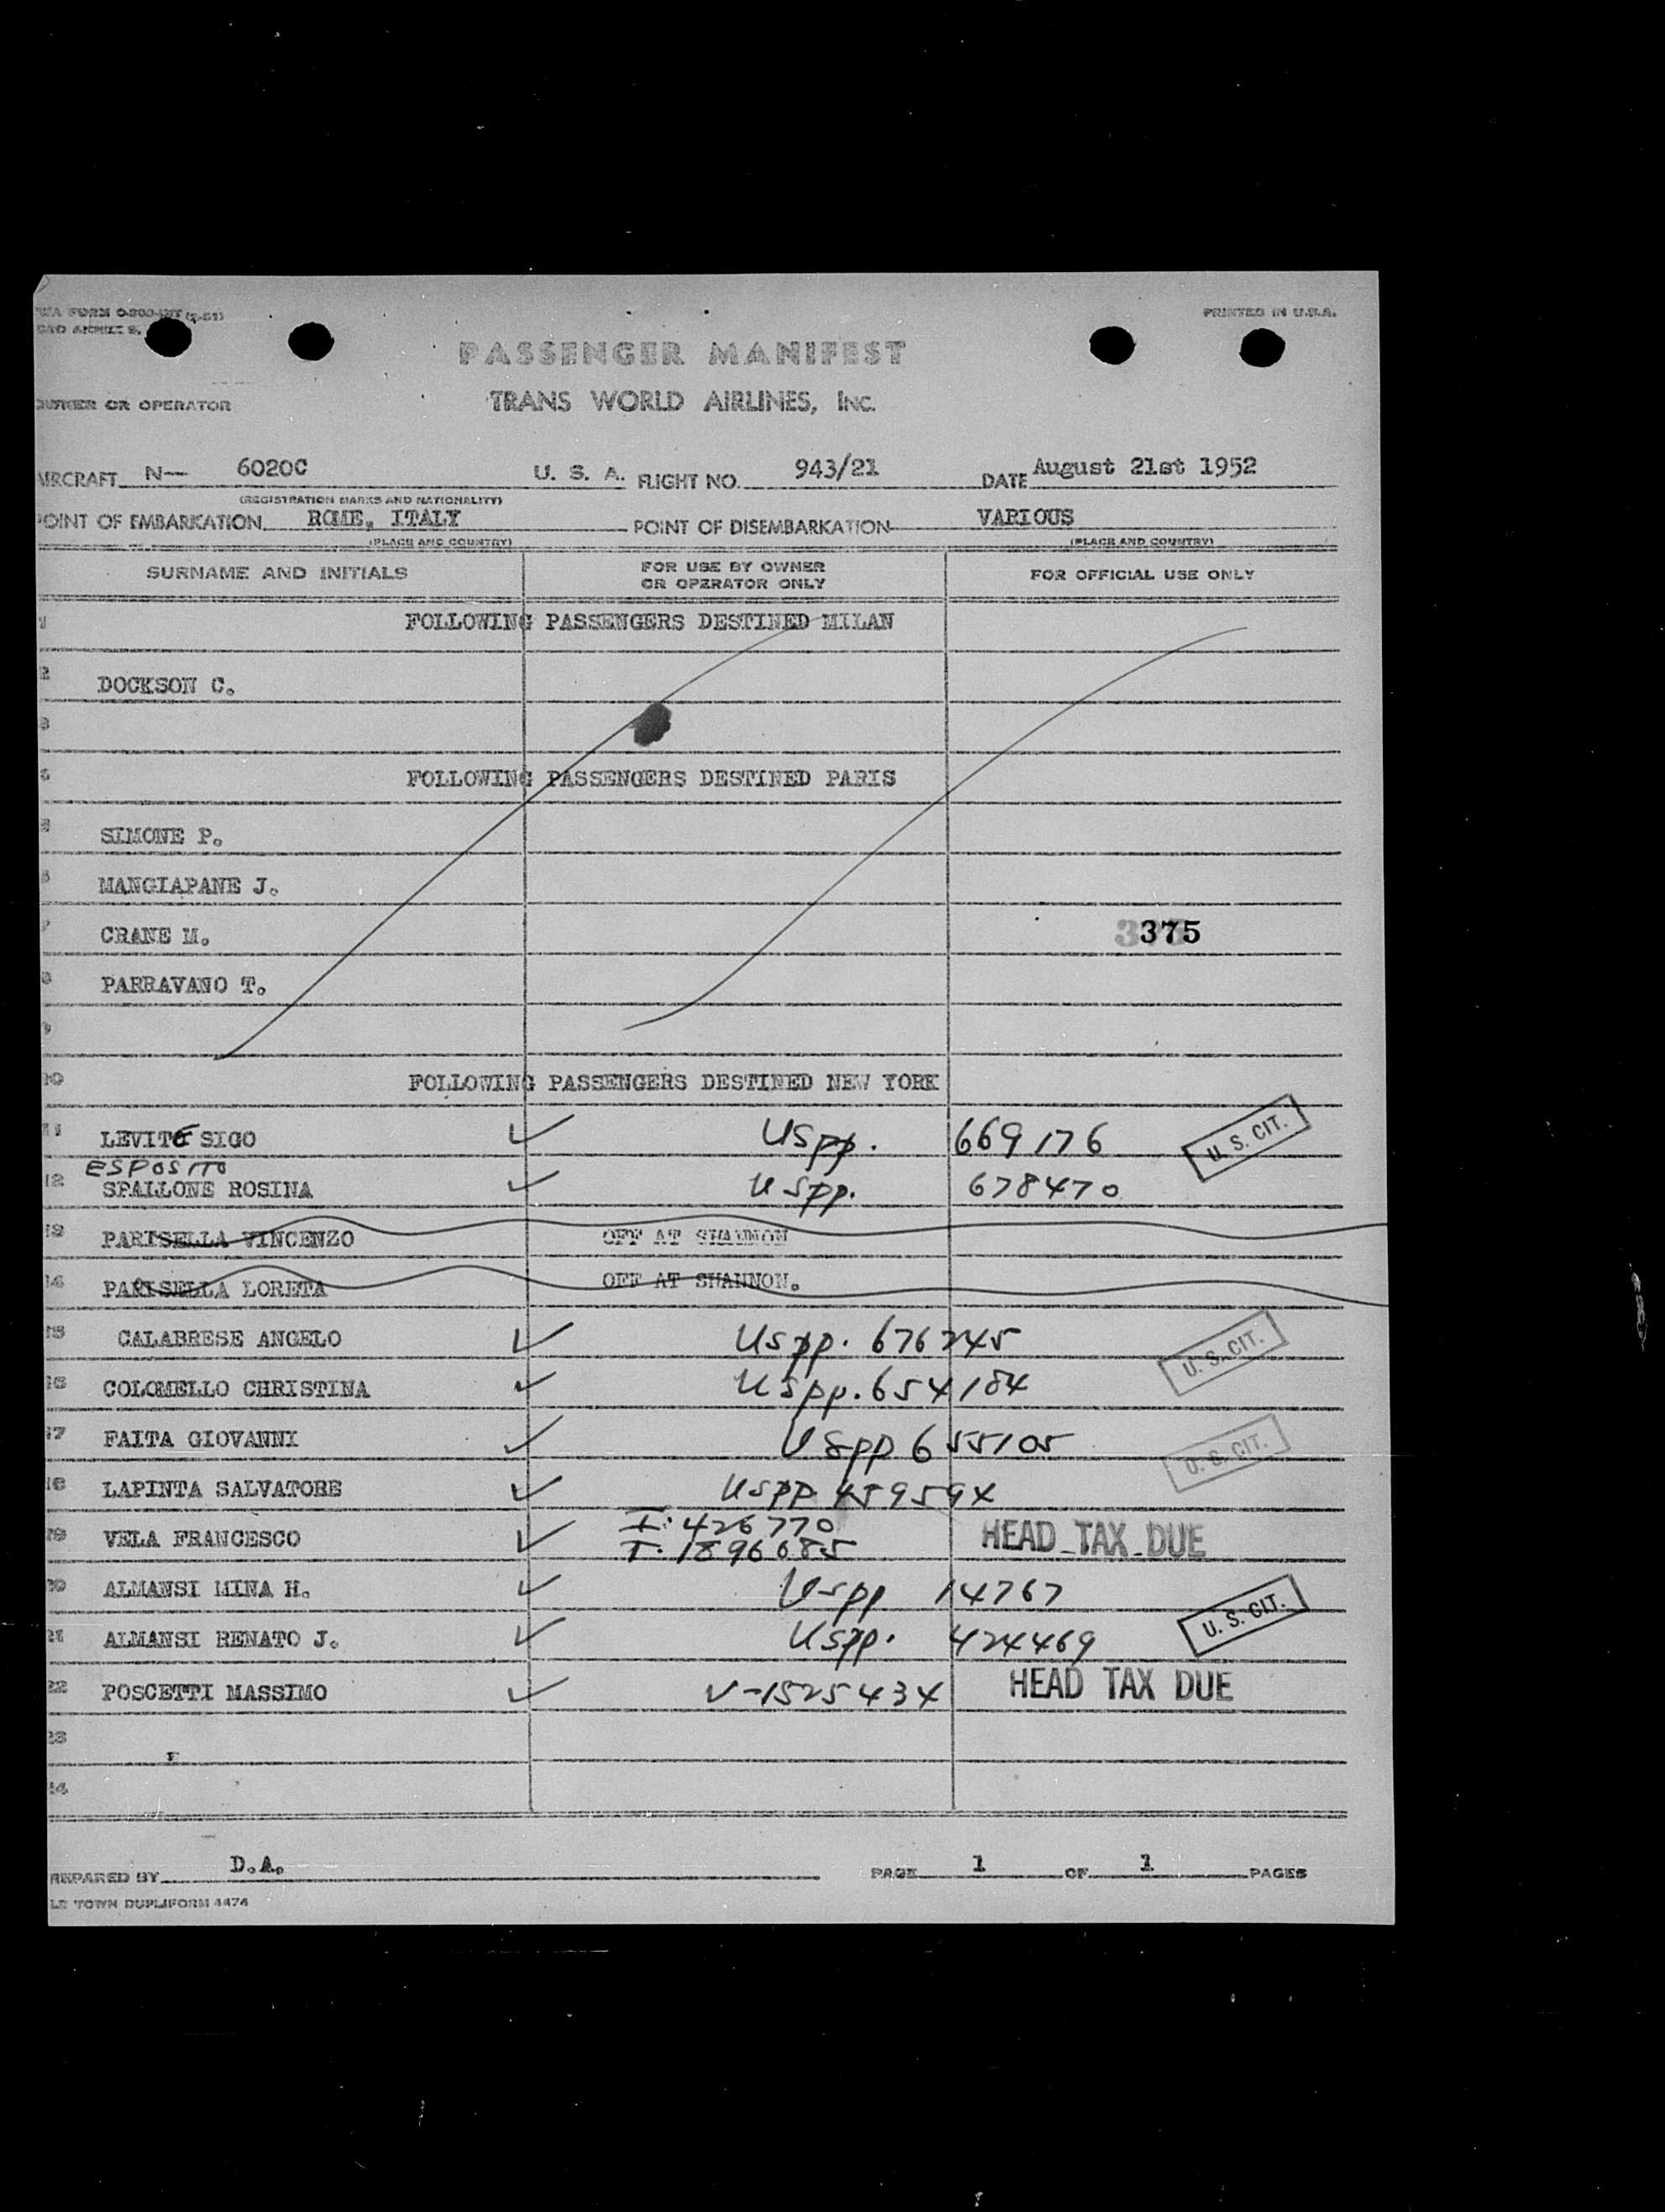 TWA FORM O-200-INT (2-51)
PRINTED IN U.S.A.
PASSENGER MANIFEST
OWNER OR OPERATOR TRANS WORLD AIRLINES, INC.
AIRCRAFT N— 6020C U. S. A. FLIGHT NO. 943/21 DATE August 21st 1952
(REGISTRATION MARKS AND NATIONALITY)
POINT OF EMBARKATION ROME, ITALY POINT OF DISEMBARKATION VARIOUS
(PLACE AND COUNTRY) (PLACE AND COUNTRY)
SURNAME AND INITIALS FOR USE BY OWNER OR OPERATOR ONLY FOR OFFICIAL USE ONLY
1 FOLLOWING PASSENGERS DESTINED MILAN
2 DOCKSON C.
3
4 FOLLOWING PASSENGERS DESTINED PARIS
5 SIMONE P.
6 MANGIAPANE J.
7 CRANE M. 375
8 PARRAVANO T.
9
10 FOLLOWING PASSENGERS DESTINED NEW YORK
11 LEVITE SIGO ✓ USpp. 669176 U. S. CIT.
ESPOSITO
12 SPALLONE ROSINA ✓ USpp. 678470
13 PARISELLA VINCENZO OFF AT SHANNON
14 PARISELLA LORETA OFF AT SHANNON.
15 CALABRESE ANGELO ✓ USpp. 676745 U. S. CIT.
16 COLOMELLO CHRISTINA ✓ USpp. 654184
17 FAITA GIOVANNI ✓ USpp 655105 U. S. CIT.
18 LAPINTA SALVATORE ✓ USpp 459594
19 VELA FRANCESCO ✓ I: 426770 HEAD TAX DUE
T. 1896085
20 ALMANSI MINA H. ✓ USpp 14767
21 ALMANSI RENATO J. ✓ USpp. 424469 U. S. CIT.
22 POSCETTI MASSIMO ✓ V-1525434 HEAD TAX DUE
23
24
PREPARED BY D.A. PAGE 1 OF 1 PAGES
TOWN DUPLIFORM 4474